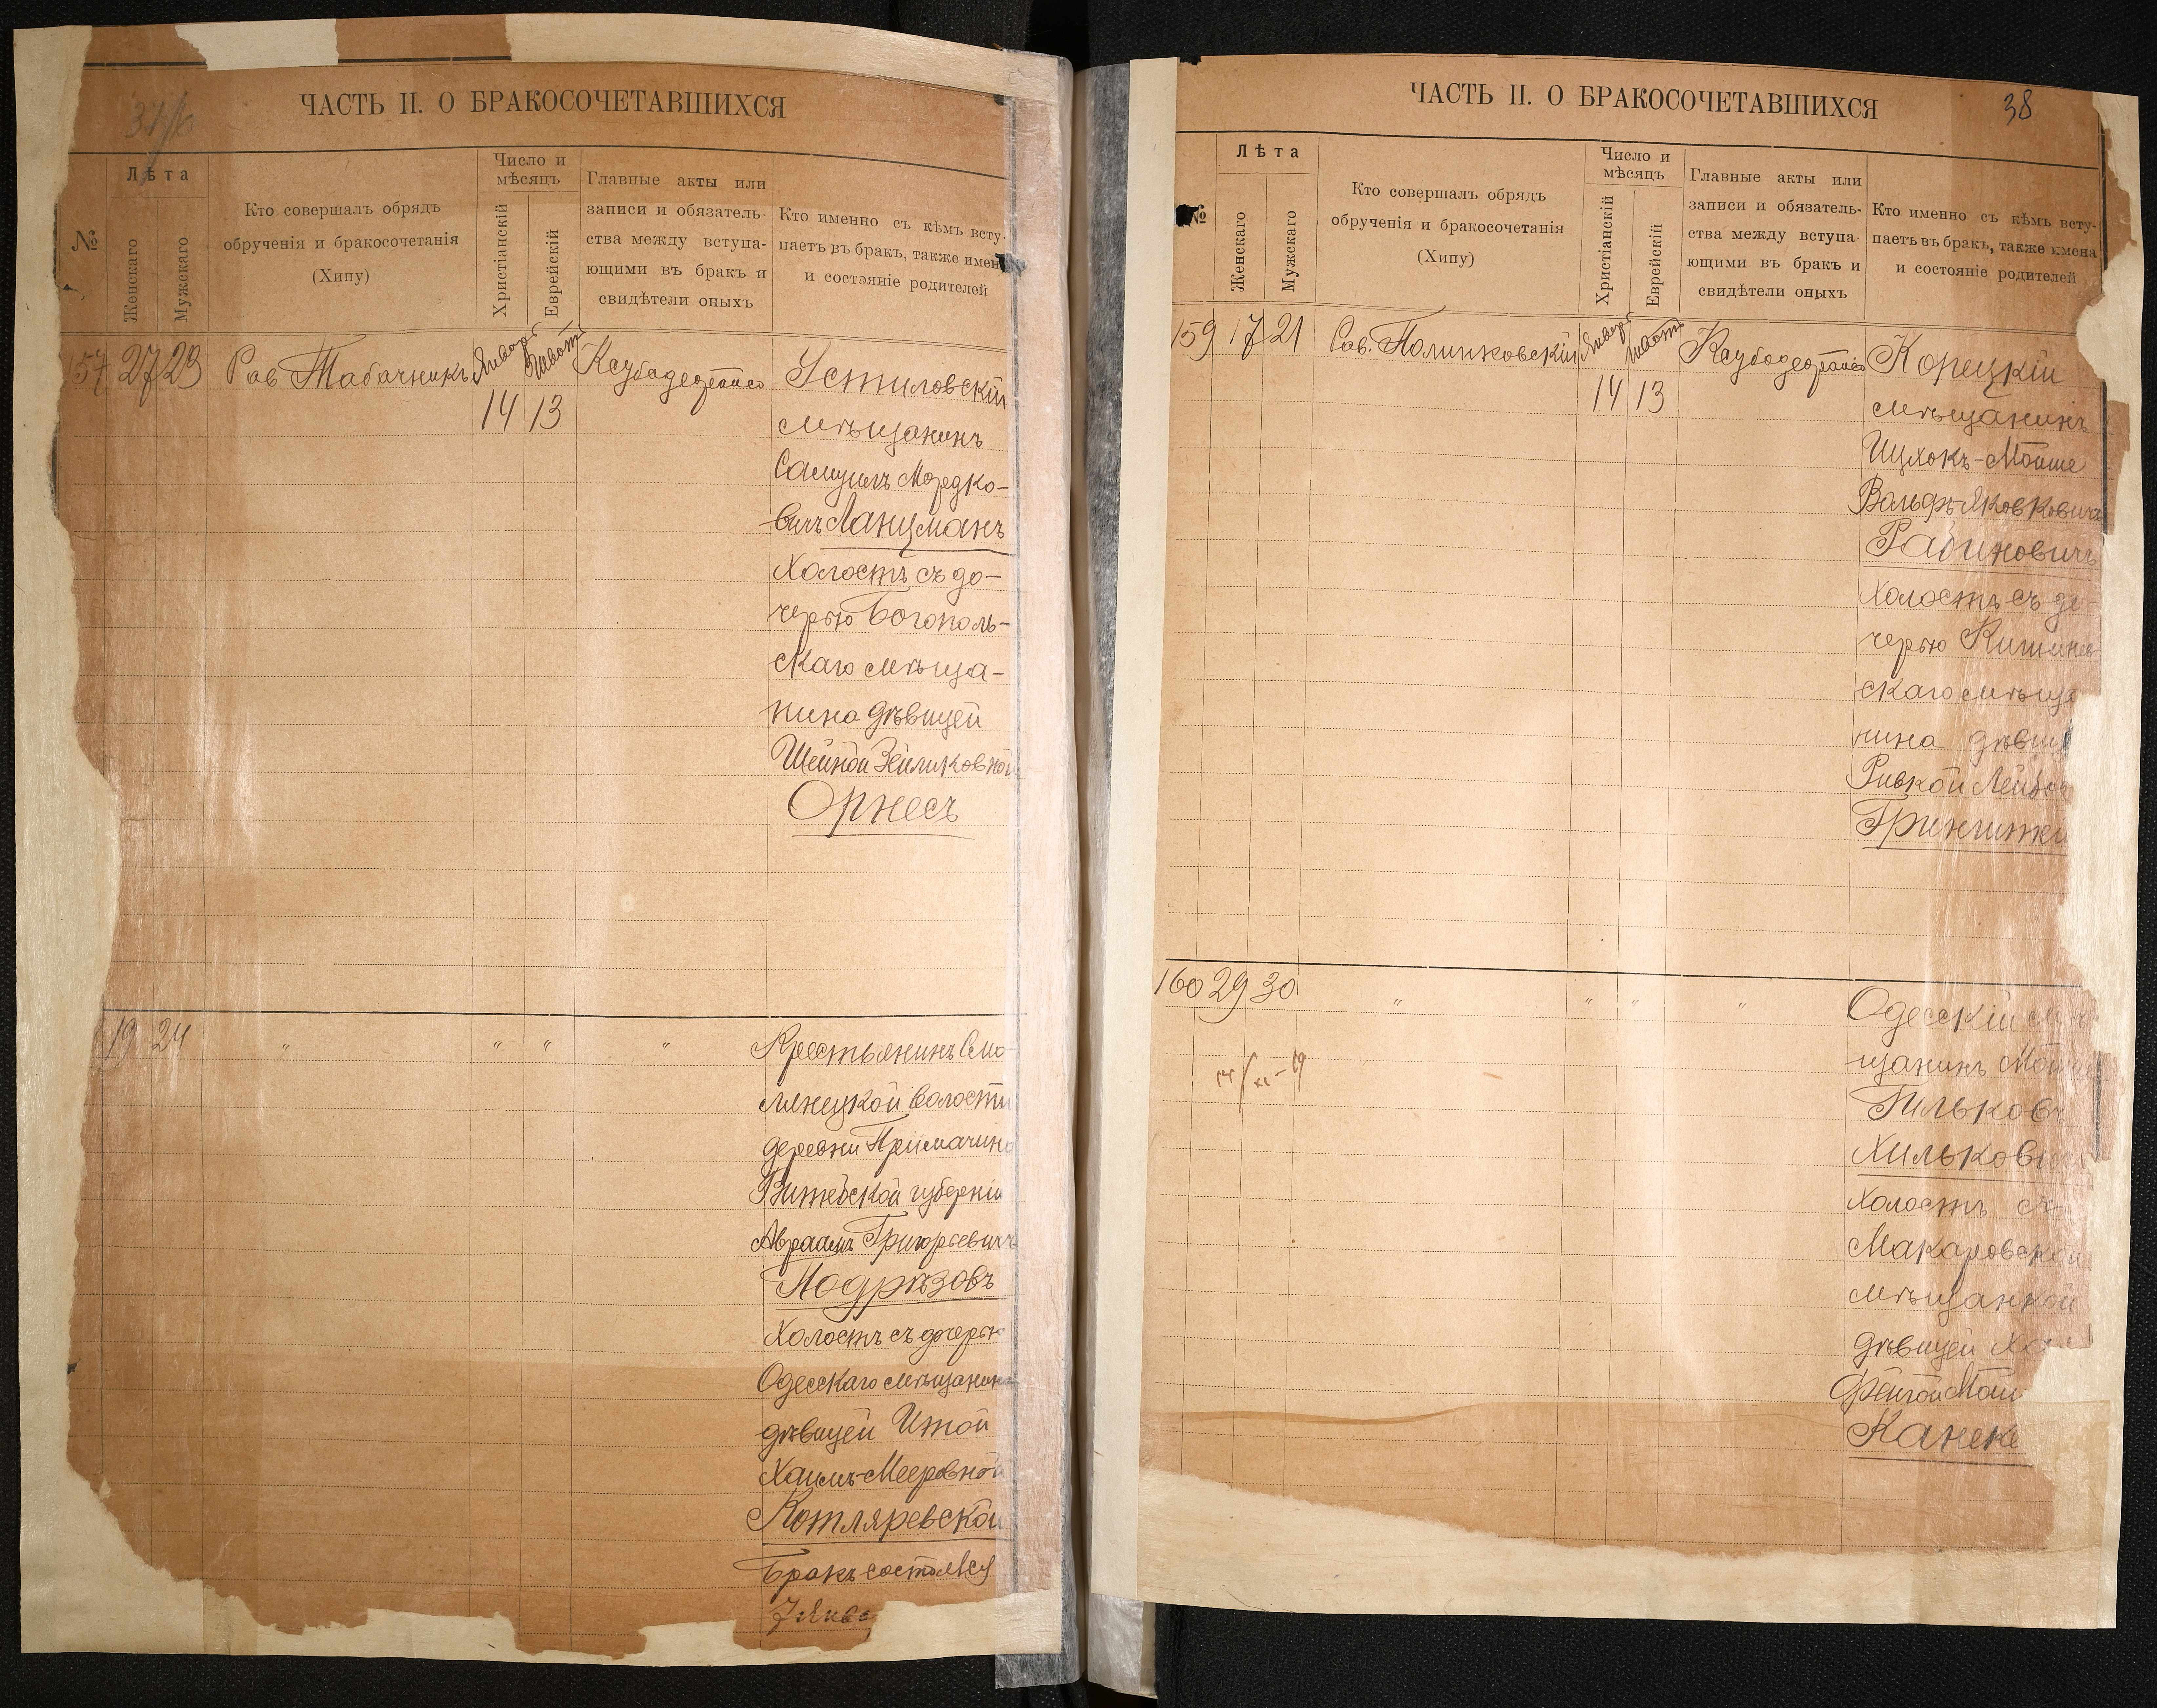 ЧАСТЬ II. О БРАКОСОЧЕТАВШИХСЯ
№
Лѣта
Женскаго
Мужскаго
Кто совершалъ обрядъ
обрученія и бракосочетанія
(Хипу)
Число и
мѣсяцъ
Христіанскій
Еврейскій
Главные акты или
записи и обязатель-
ства между вступа-
ющими въ бракъ и
свидѣтели оныхъ
Кто именно съ кѣмъ всту-
паетъ въ бракъ, также имен
и состояніе родителей
157 27 23 Рав. Табачникъ Январь 14 Шватъ 13
Устиловскій
мѣщанинъ
Самуилъ Мордко-
вичъ Ланцманъ
холостъ съ до-
черью Богополь-
скаго мѣща-
нина дѣвицей
Шейной Зейликовной
Орнесъ
19 24 " " " "
Крестьянинъ Смо-
лянецкой волости
деревни
Витебской губерніи
Авраамъ Григорьевичъ
Подрѣзовъ
холостъ съ дочерью
Одесскаго мѣщанина
дѣвицей Итой
Хаимъ-Мееровной
Котляревской
Бракъ состоялся
7 Янва
ЧАСТЬ II. О БРАКОСОЧЕТАВШИХСЯ
38
№
Лѣта
Женскаго
Мужскаго
Кто совершалъ обрядъ
обрученія и бракосочетанія
(Хипу)
Число и
мѣсяцъ
Христіанскій
Еврейскій
Главные акты или
записи и обязатель-
ства между вступа-
ющими въ бракъ и
свидѣтели оныхъ
Кто именно съ кѣмъ всту-
паетъ въ бракъ, также имена
и состояніе родителей
159 17 21 Рав. Полинковскій Январь 14 Шватъ 13
Корецкій
мѣщанинъ
Ицхокъ-Мойше
Вольфъ-Яковковичъ
Рабиновичъ
холостъ съ до
черью Кишинев-
скаго мѣща
нина дѣвиц
Ривкой Лейбов
160 29 30 " " " "
Одесскій мѣ
щанинъ Мой
Гильков
Хилькови
холостъ съ
Макаровской
мѣщанкой
дѣвицей Ха
Фейгой Мой
Канеке